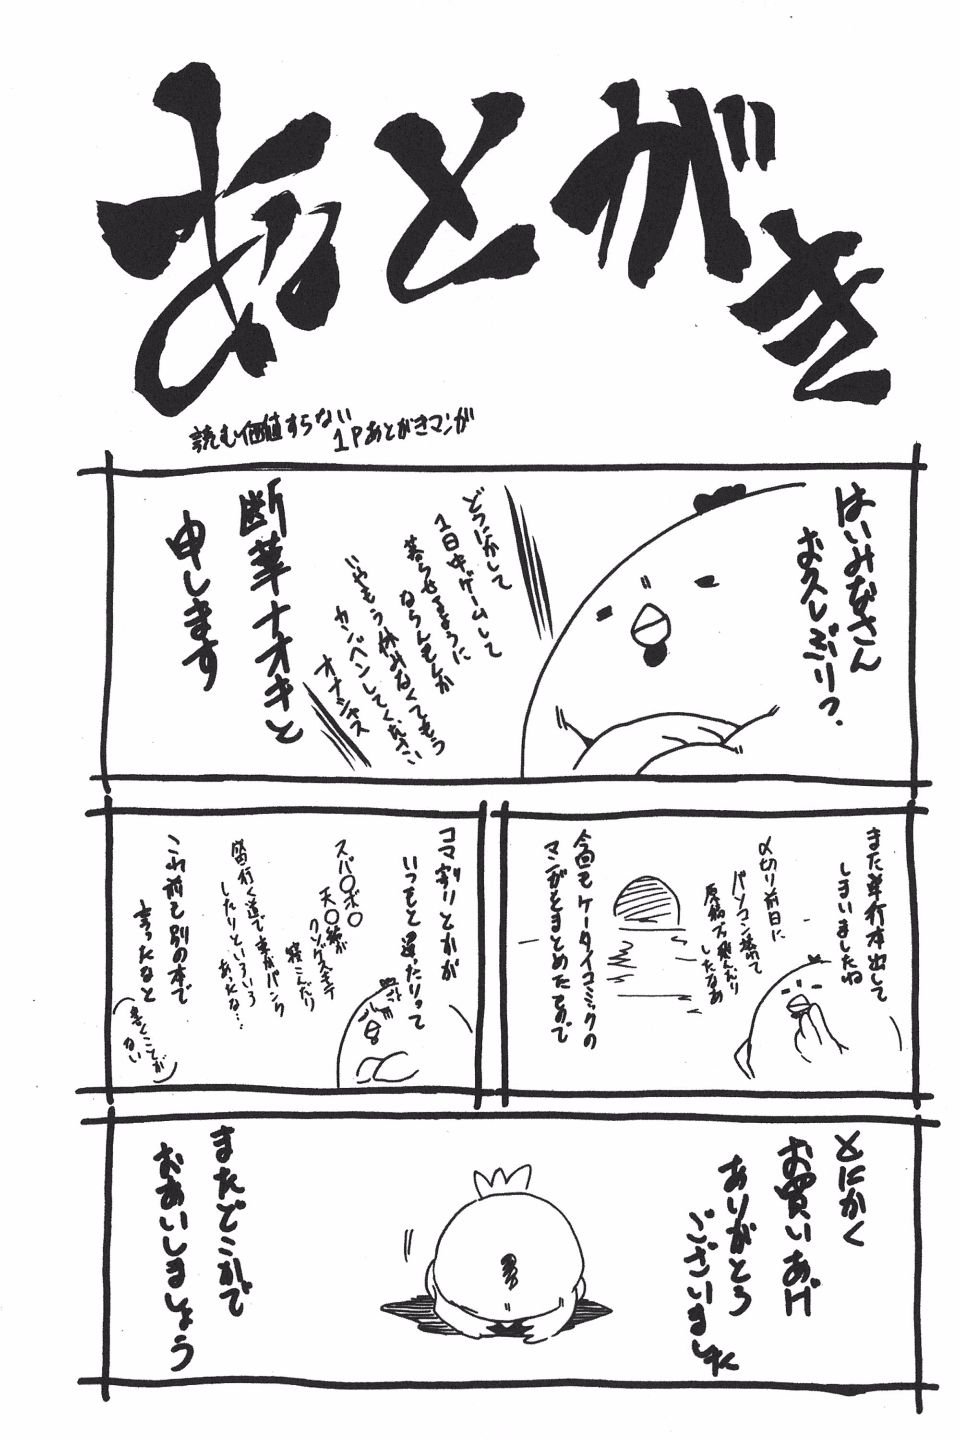 あとがき
読む価値すらない
1Pあとがきマンガ
はいみなさん
お久しぶりっ。
どうにかして
1日中ゲームして
暮らせるように
ならんもんか
いやもう休みなくてもう
カンベンしてください
オナシャス
断華ナオキと
申します
また単行本出して
しまいましたね
〆切り前日に
パソコン壊れて
原稿万飛んだり
したなあ
今回もケータイコミックの
マンガをまとめたもので
コマ割りとかが
いつもと違ったりって
スパ○ボ○
天○編が
クソゲスギテ
寝こんだり
皆行く道で車がパンク
したりといろいろ
あったな…
これ前も別の本で
言ったなと
(書くことが
ない)
とにかく
お買いあげ
ありがとう
ございました
またどこかで
おあいしましょう